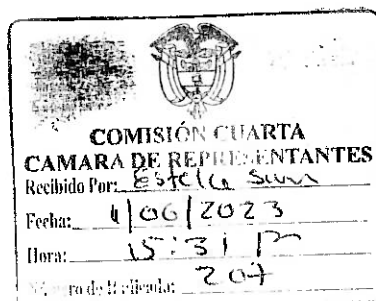 COMISIÓN CUARTA
CAMARA DE REPRESENTANTES
Recibido Por: Estella
Fecha: 1/06/2023
Hora: 15:31 Pm
Número de Radicado: 207